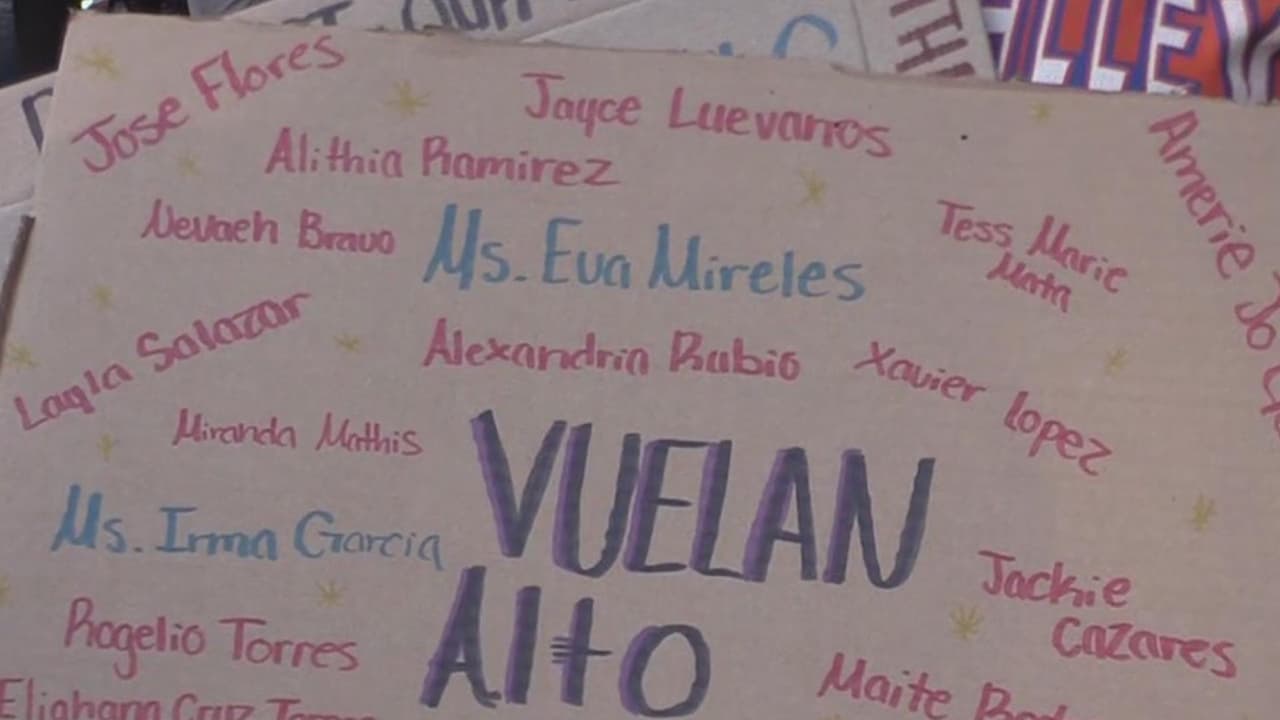 Jose Flores
Jayce Luevanos
Alithia Ramirez
Amerie Jo
Nevaeh Bravo
Ms. Eva Mireles
Tess Marie
Mata
Layla Salazar
Alexandria Rubio
Xavier lopez
Miranda Mathis
VUELAN
Alto
Ms. Irma Garcia
Jackie
Cazares
Rogelio Torres
Maite
Eliahana Cruz